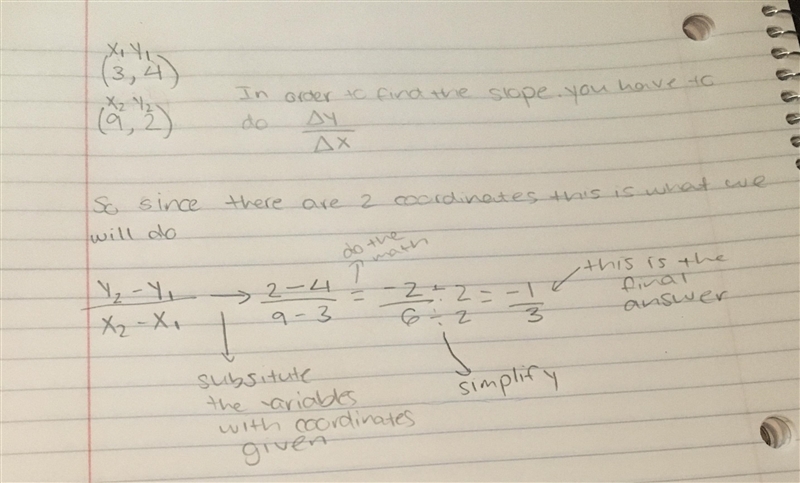 X₁ Y₁
(3, 4)
X₂ Y₂
(9, 2)
In order to find the slope. you have to
do ΔY/ΔX
So since there are 2 coordinates this is what we
will do
do the
math
Y₂ - Y₁ / X₂ - X₁ → 2 - 4 / 9 - 3 = -2 ÷ 2 / 6 ÷ 2 = -1/3
this is the
final
answer
subsitute
the variables
with coordinates
given
simplify